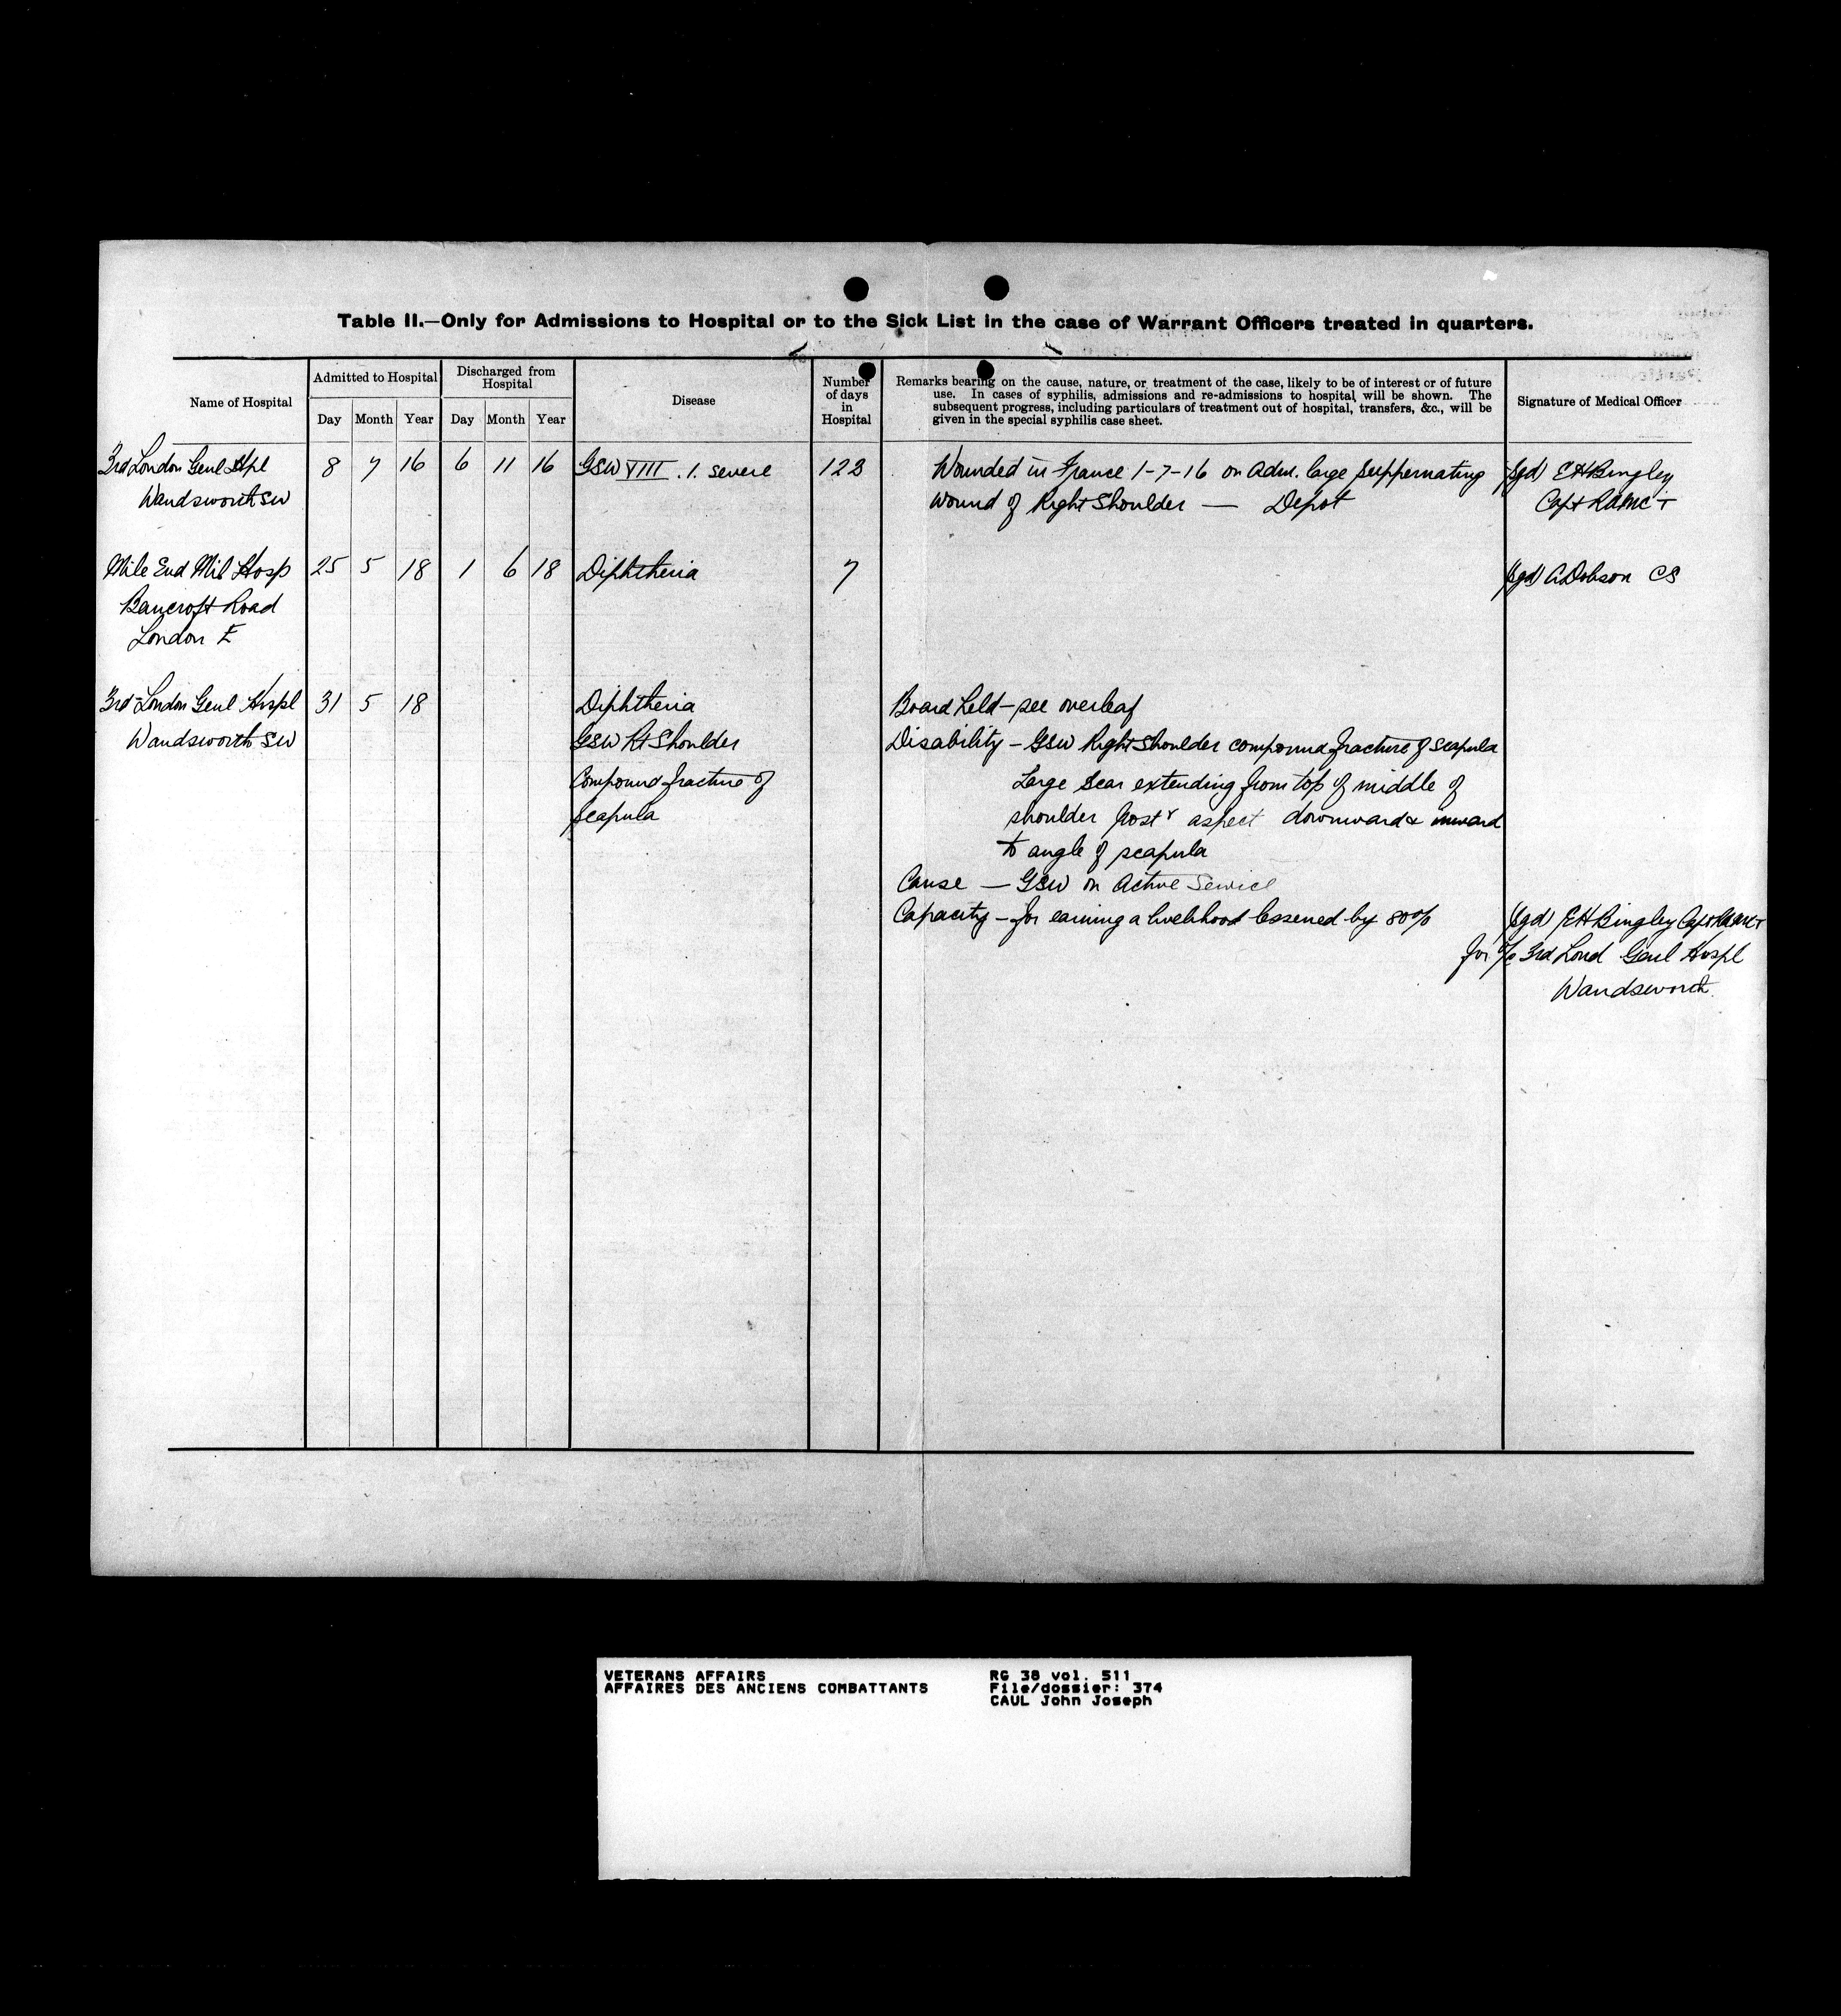 Table II.—Only for Admissions to Hospital or to the Sick List in the case of Warrant Officers treated in quarters.
Name of Hospital
Admitted to Hospital
Discharged from
Hospital
Disease
Number
of days
in
Hospital
Remarks bearing on the cause, nature, or treatment of the case, likely to be of interest or of future
use. In cases of syphilis, admissions and re-admissions to hospital will be shown. The
subsequent progress, including particulars of treatment out of hospital, transfers, &c., will be
given in the special syphilis case sheet.
Signature of Medical Officer
Day Month Year Day Month Year
3rd London Genl Hpl 8 7 16 6 11 16 GSW VIII .1. severe 123 Wounded in France 1-7-16 on Adm. large suppernating (sgd) E H Bingley
Wandsworth SW wound of Right Shoulder — Depot Capt RAMC T
Mile End Mil Hosp 25 5 18 1 6 18 Diphtheria 7 (sgd) A Dobson CS
Bancroft Road
London E
3rd London Genl Hospl 31 5 18 Diphtheria Board held – see overleaf
Wandsworth SW GSW Rt Shoulder Disability – GSW Right Shoulder compound fracture of scapula
Compound fracture of Large scar extending from top of middle of
scapula shoulder postr aspect downward & inward
to angle of scapula
Cause — GSW on Active Service
Capacity – for earning a livelihood lessened by 80% (sgd) E H Bingley Capt RAMCT
for o/c 3rd Lond Genl Hospl
Wandsworth
VETERANS AFFAIRS RG 38 vol. 511
AFFAIRES DES ANCIENS COMBATTANTS File/dossier: 374
CAUL John Joseph